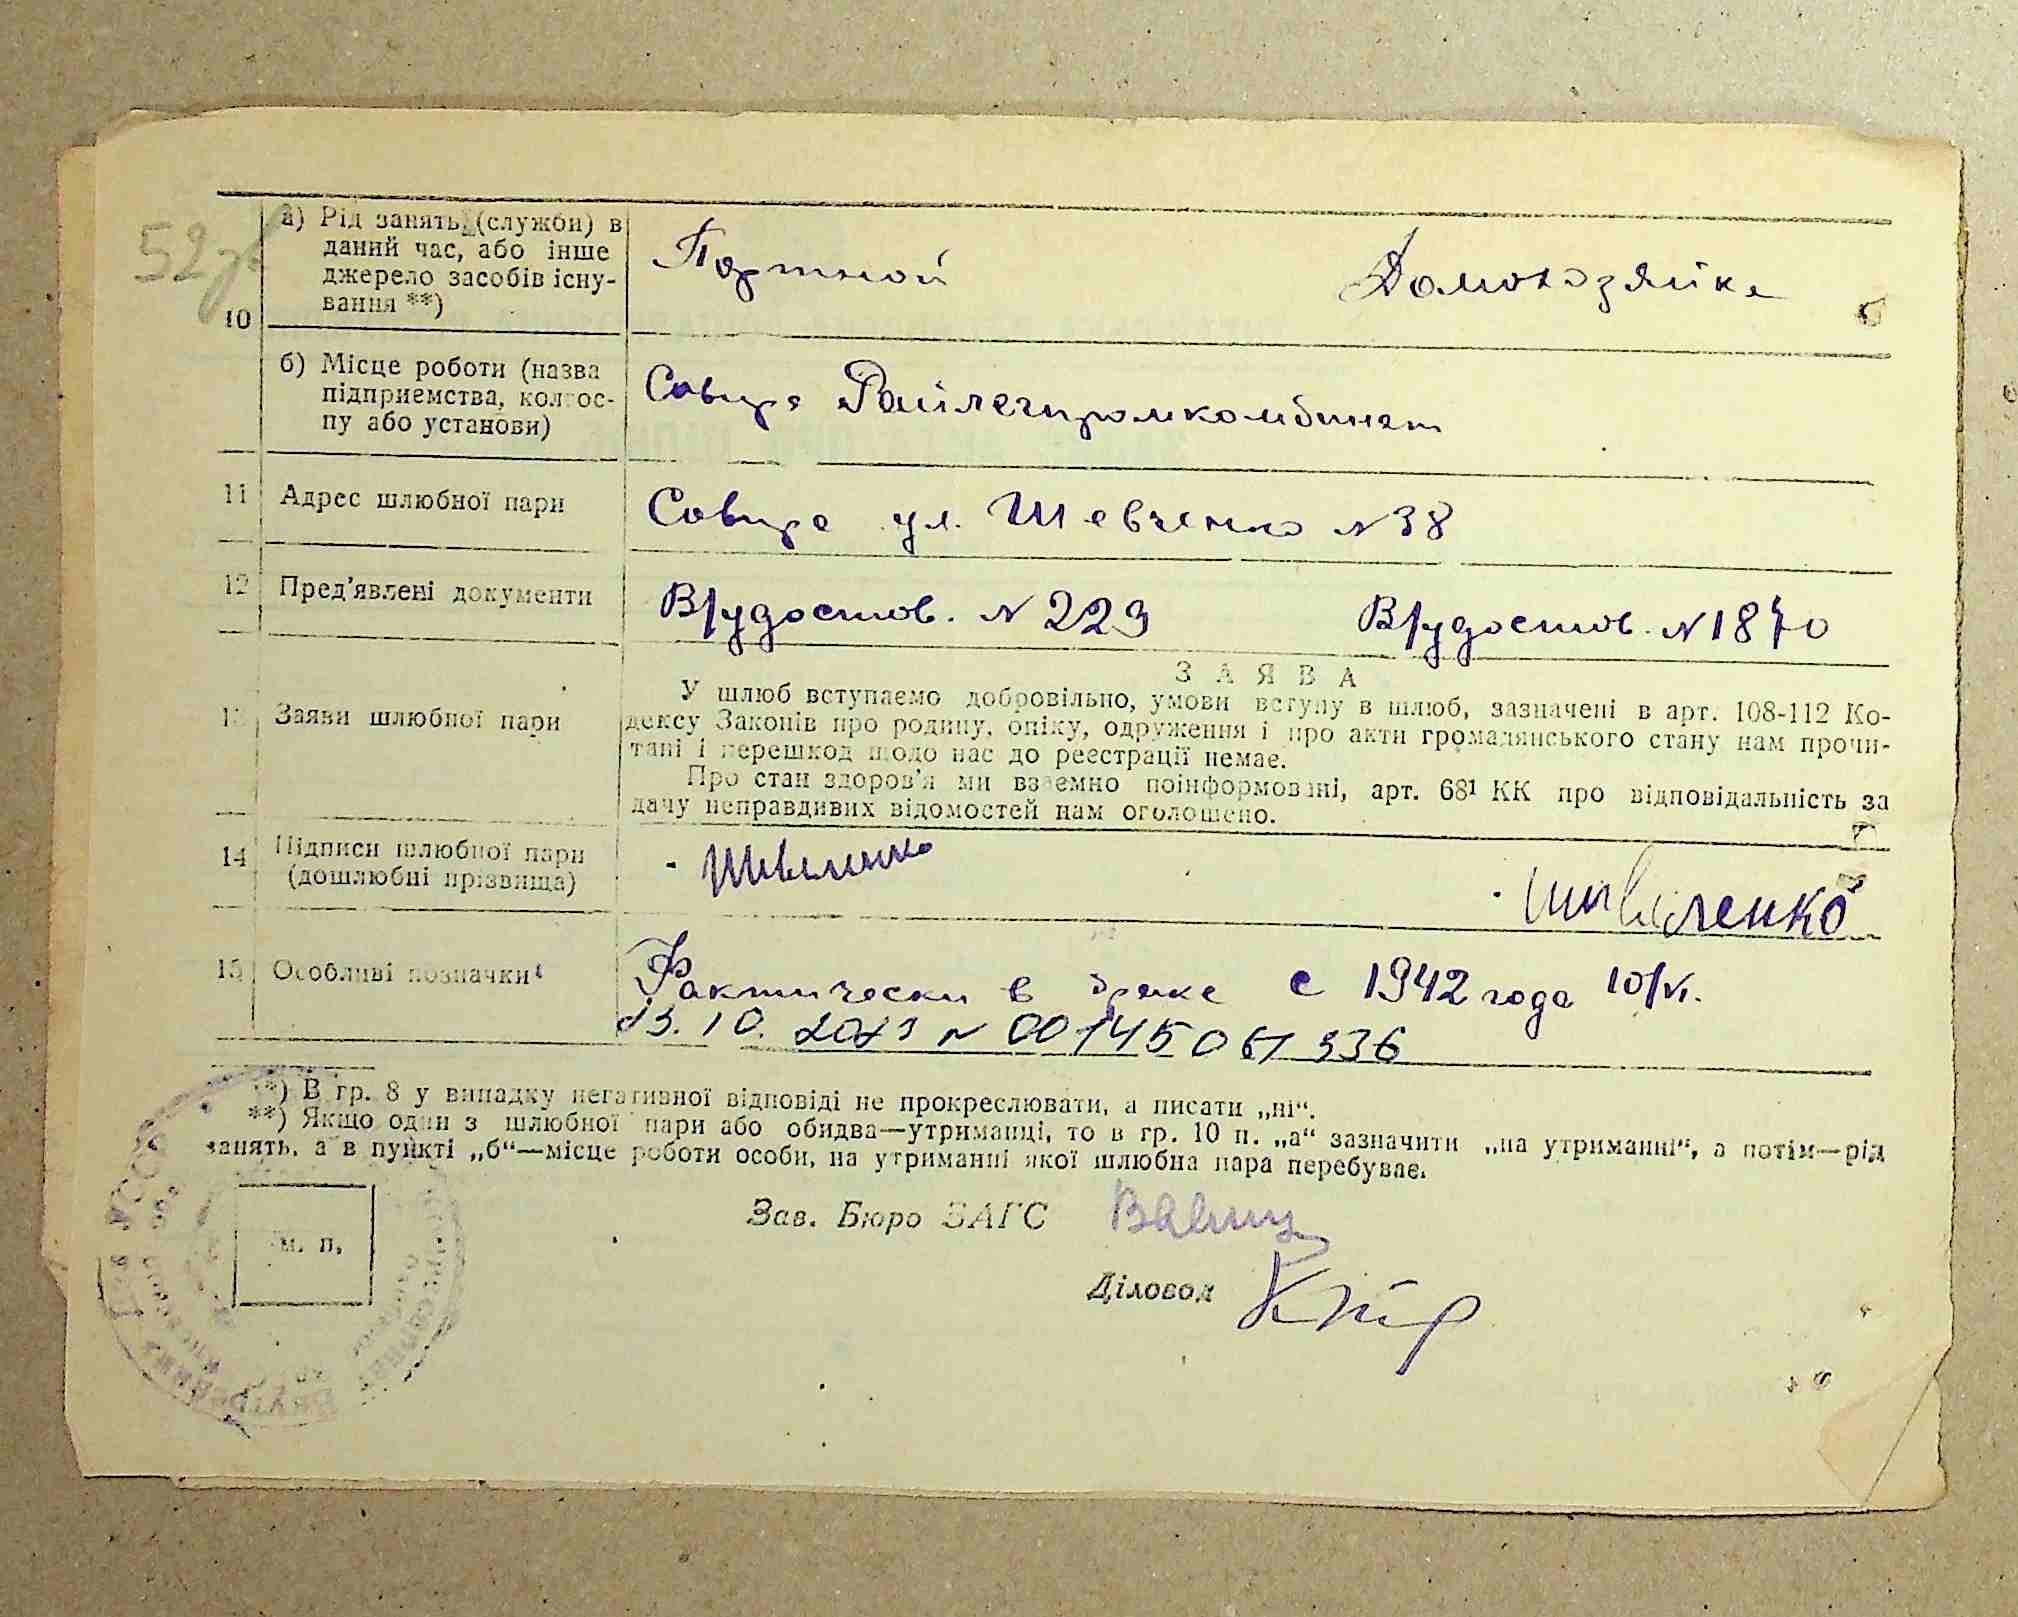 52
10
а) Рід занять (служби) в
даний час, або інше
джерело засобів існу-
вання **)
Портной
Домохозяйка
б) Місце роботи (назва
підприємства, колгос-
пу або установи)
Сквира Райлегпромкомбинат
11
Адрес шлюбної пари
Сквира ул. Шевченко №38
12
Пред'явлені документи
В/удостов. № 229
В/удостов. №1870
13
Заяви шлюбної пари
ЗАЯВА
У шлюб вступаємо добровільно, умови вступу в шлюб, зазначені в арт. 108-112 Ко-
дексу Законів про родину, опіку, одруження і про акти громадянського стану нам прочи-
тані і перешкод щодо нас до реєстрації немає.
Про стан здоров'я ми взаємно поінформовані, арт. 68¹ КК про відповідальність за
дачу неправдивих відомостей нам оголошено.
14
Підписи шлюбної пари
(дошлюбні прізвища)
15
Особливі позначки
Фактически в браке с 1942 года 10/VI.
13.10. № 00145061336
*) В гр. 8 у випадку негативної відповіді не прокреслювати, а писати „ні“.
**) Якщо один з шлюбної пари або обидва—утриманці, то в гр. 10 п. „а“ зазначити „на утриманні“, а потім—рід
занять, а в пункті „б“—місце роботи особи, на утриманні якої шлюбна пара перебуває.
м. п.
Зав. Бюро ЗАГС
Діловод